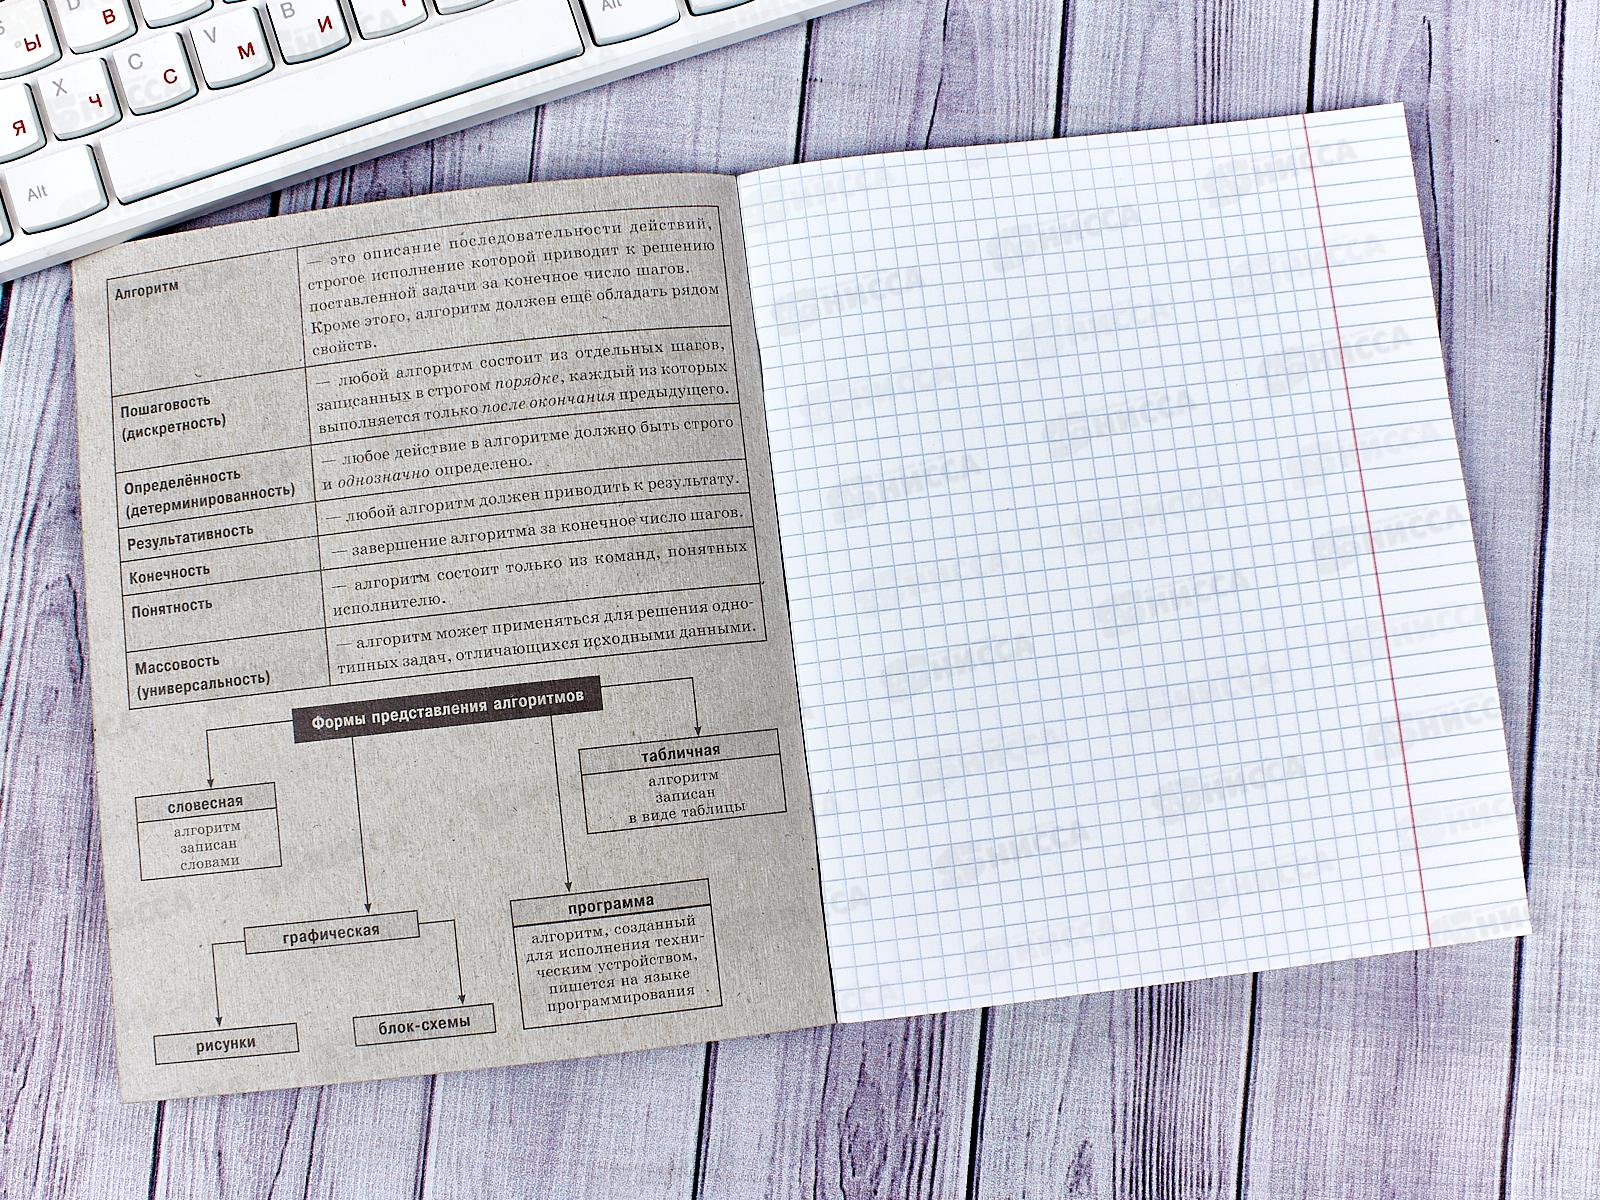 S Ы
D В
Х Ч
С С
V М
В И
Я
Alt
Alt
Алгоритм
— это описание последовательности действий,
строгое исполнение которой приводит к решению
поставленной задачи за конечное число шагов.
Кроме этого, алгоритм должен ещё обладать рядом
свойств.
Пошаговость
(дискретность)
— любой алгоритм состоит из отдельных шагов,
записанных в строгом порядке, каждый из которых
выполняется только после окончания предыдущего.
Определённость
(детерминированность)
— любое действие в алгоритме должно быть строго
и однозначно определено.
Результативность
— любой алгоритм должен приводить к результату.
Конечность
— завершение алгоритма за конечное число шагов.
Понятность
— алгоритм состоит только из команд, понятных
исполнителю.
Массовость
(универсальность)
— алгоритм может применяться для решения одно-
типных задач, отличающихся исходными данными.
Формы представления алгоритмов
словесная
алгоритм
записан
словами
графическая
рисунки
блок-схемы
программа
алгоритм, созданный
для исполнения техни-
ческим устройством,
пишется на языке
программирования
табличная
алгоритм
записан
в виде таблицы
НИССА